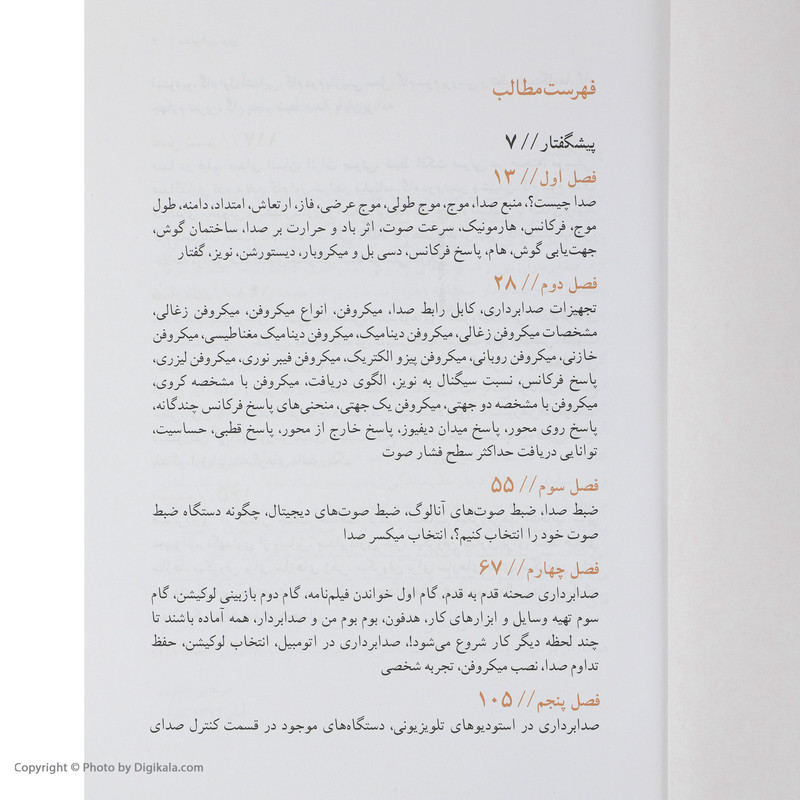 فهرست مطالب
پیشگفتار // ۷
فصل اول // ۱۳
صدا چیست؟، منبع صدا، موج، موج طولی، موج عرضی، فاز، ارتعاش، امتداد، دامنه، طول
موج، فرکانس، هارمونیک، سرعت صوت، اثر باد و حرارت بر صدا، ساختمان گوش،
جهت‌یابی گوش، هام، پاسخ فرکانس، دسی بل و میکروبار، دیستورشن، نویز، گفتار
فصل دوم // ۲۸
تجهیزات صدابرداری، کابل رابط صدا، میکروفن، انواع میکروفن، میکروفن زغالی،
مشخصات میکروفن زغالی، میکروفن دینامیک، میکروفن دینامیک مغناطیسی، میکروفن
خازنی، میکروفن روبانی، میکروفن پیزو الکتریک، میکروفن فیبر نوری، میکروفن لیزری،
پاسخ فرکانس، نسبت سیگنال به نویز، الگوی دریافت، میکروفن با مشخصه کروی،
میکروفن با مشخصه دو جهتی، میکروفن یک جهتی، منحنی‌های پاسخ فرکانس چندگانه،
پاسخ روی محور، پاسخ میدان دیفیوز، پاسخ خارج از محور، پاسخ قطبی، حساسیت،
توانایی دریافت حداکثر سطح فشار صوت
فصل سوم // ۵۵
ضبط صدا، ضبط صوت‌های آنالوگ، ضبط صوت‌های دیجیتال، چگونه دستگاه ضبط
صوت خود را انتخاب کنیم؟، انتخاب میکسر صدا
فصل چهارم // ۶۷
صدابرداری صحنه قدم به قدم، گام اول خواندن فیلم‌نامه، گام دوم بازبینی لوکیشن، گام
سوم تهیه وسایل و ابزارهای کار، هدفون، بوم بوم من و صدابردار، همه آماده باشند تا
چند لحظه دیگر کار شروع می‌شود!، صدابرداری در اتومبیل، انتخاب لوکیشن، حفظ
تداوم صدا، نصب میکروفن، تجربه شخصی
فصل پنجم // ۱۰۵
صدابرداری در استودیوهای تلویزیونی، دستگاه‌های موجود در قسمت کنترل صدای
Copyright © Photo by Digikala.com